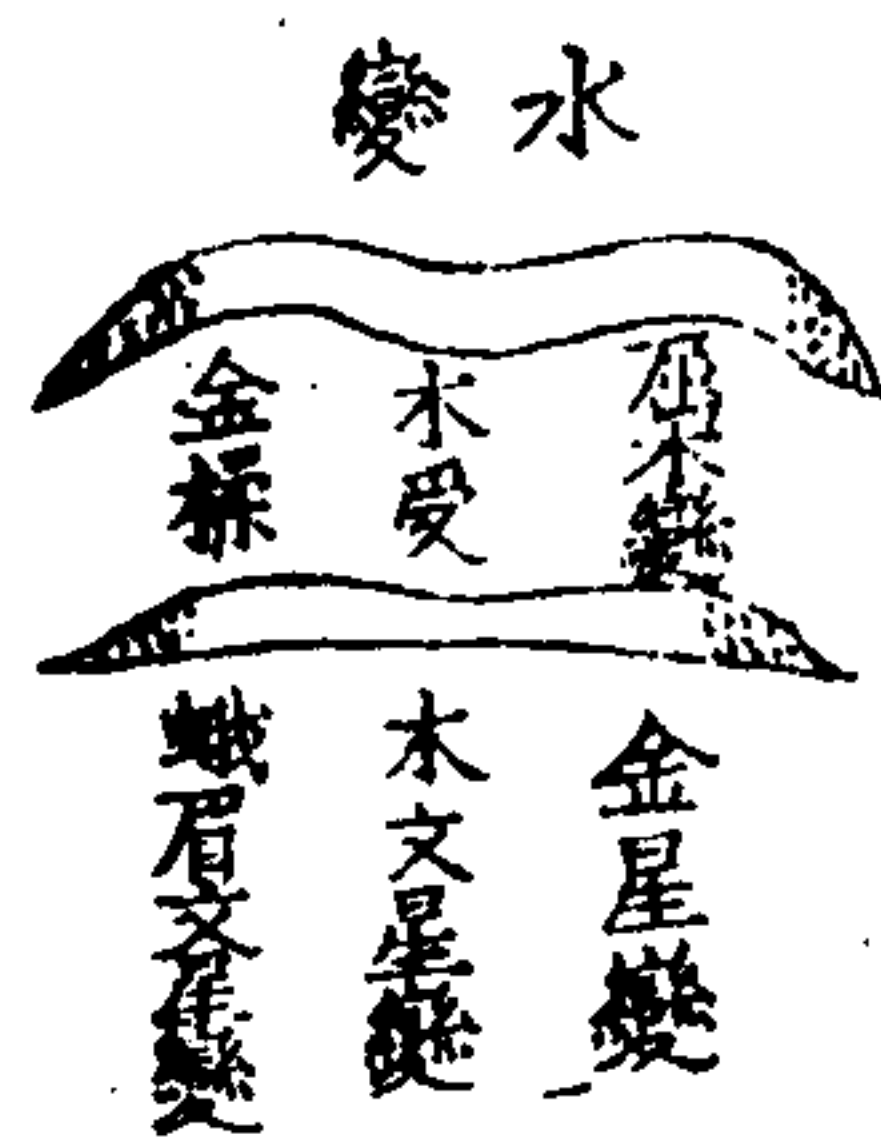 水變
屈水變
木受
金探
金星變
木文星變
蛾眉文星變